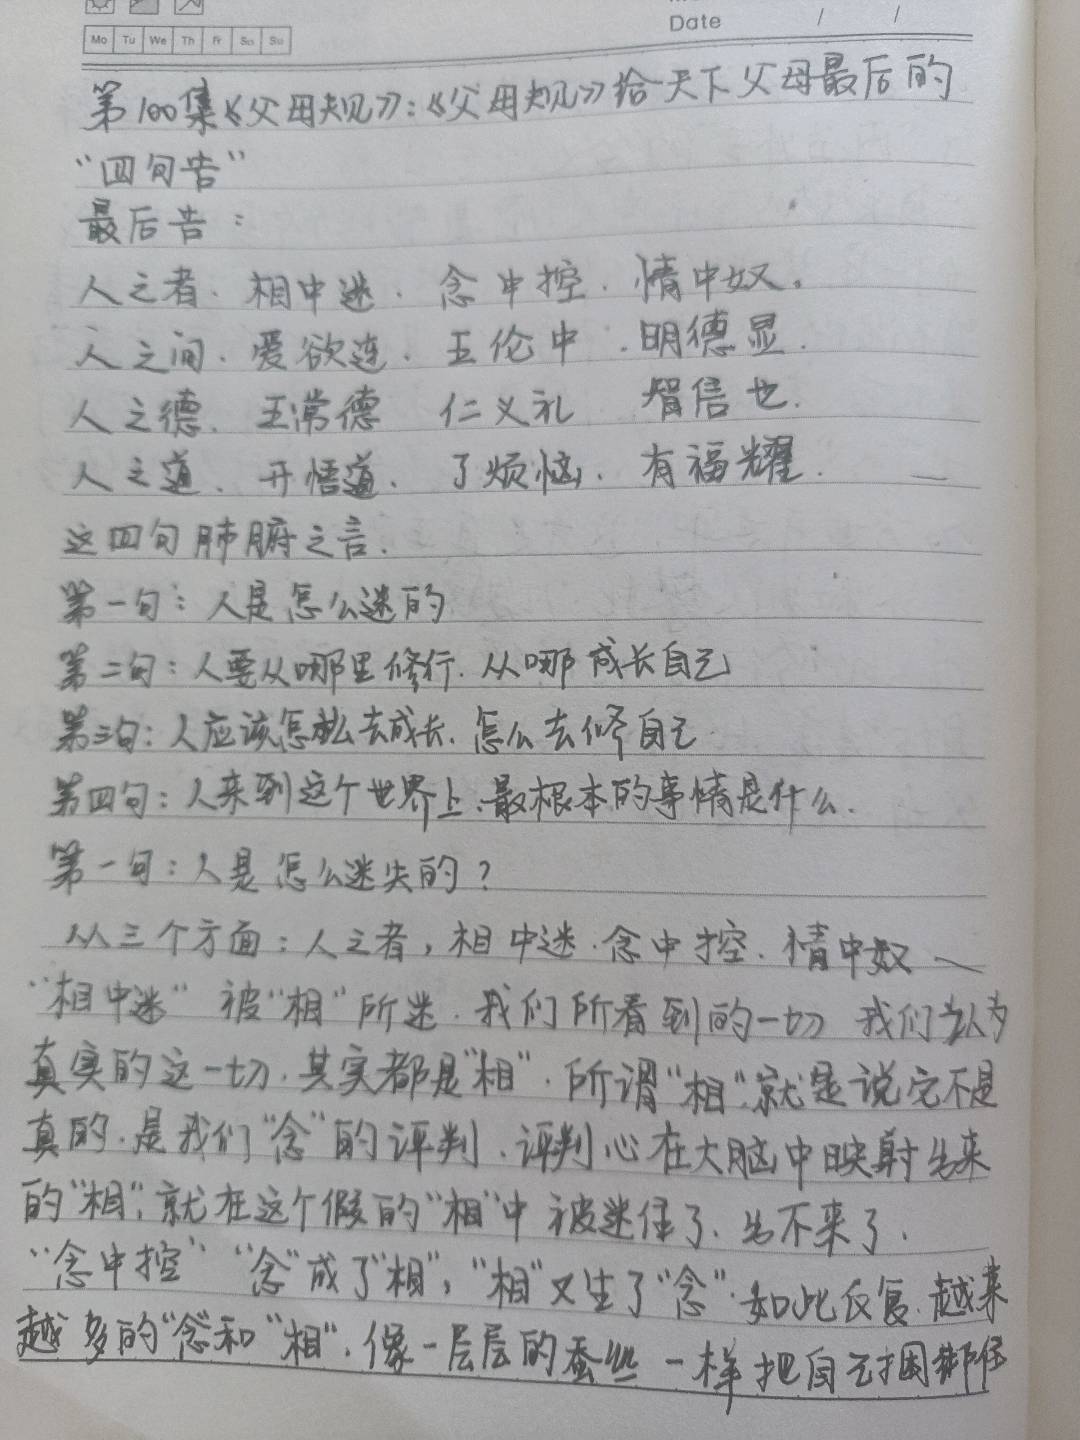 Date / /
Mo Tu We Th Fr Sa Su
第100集《父母规》:《父母规》给天下父母最后的
“四句告”
最后告:
人之者. 相中迷. 念中控. 情中奴.
人之间. 爱欲连. 五伦中. 明德显.
人之德. 五常德 仁义礼 智信也.
人之道. 开悟道. 了烦恼. 有福耀. —
这四句肺腑之言.
第一句: 人是怎么迷的
第二句: 人要从哪里修行. 从哪成长自己
第三句: 人应该怎么去成长. 怎么去修自己
第四句: 人来到这个世界上. 最根本的事情是什么.
第一句: 人是怎么迷失的?
从三个方面: 人之者, 相中迷. 念中控. 情中奴
“相中迷” 被“相”所迷. 我们所看到的一切 我们认为
真实的这一切. 其实都是“相”. 所谓“相”. 就是说它不是
真的. 是我们“念”的评判. 评判心在大脑中映射出来
的“相”. 就在这个假的“相”中被迷住了. 出不来了.
“念中控” “念”成了“相”, “相”又生了“念”. 如此反复. 越来
越多的“念”和“相”. 像一层层的蚕丝一样把自己捆绑住